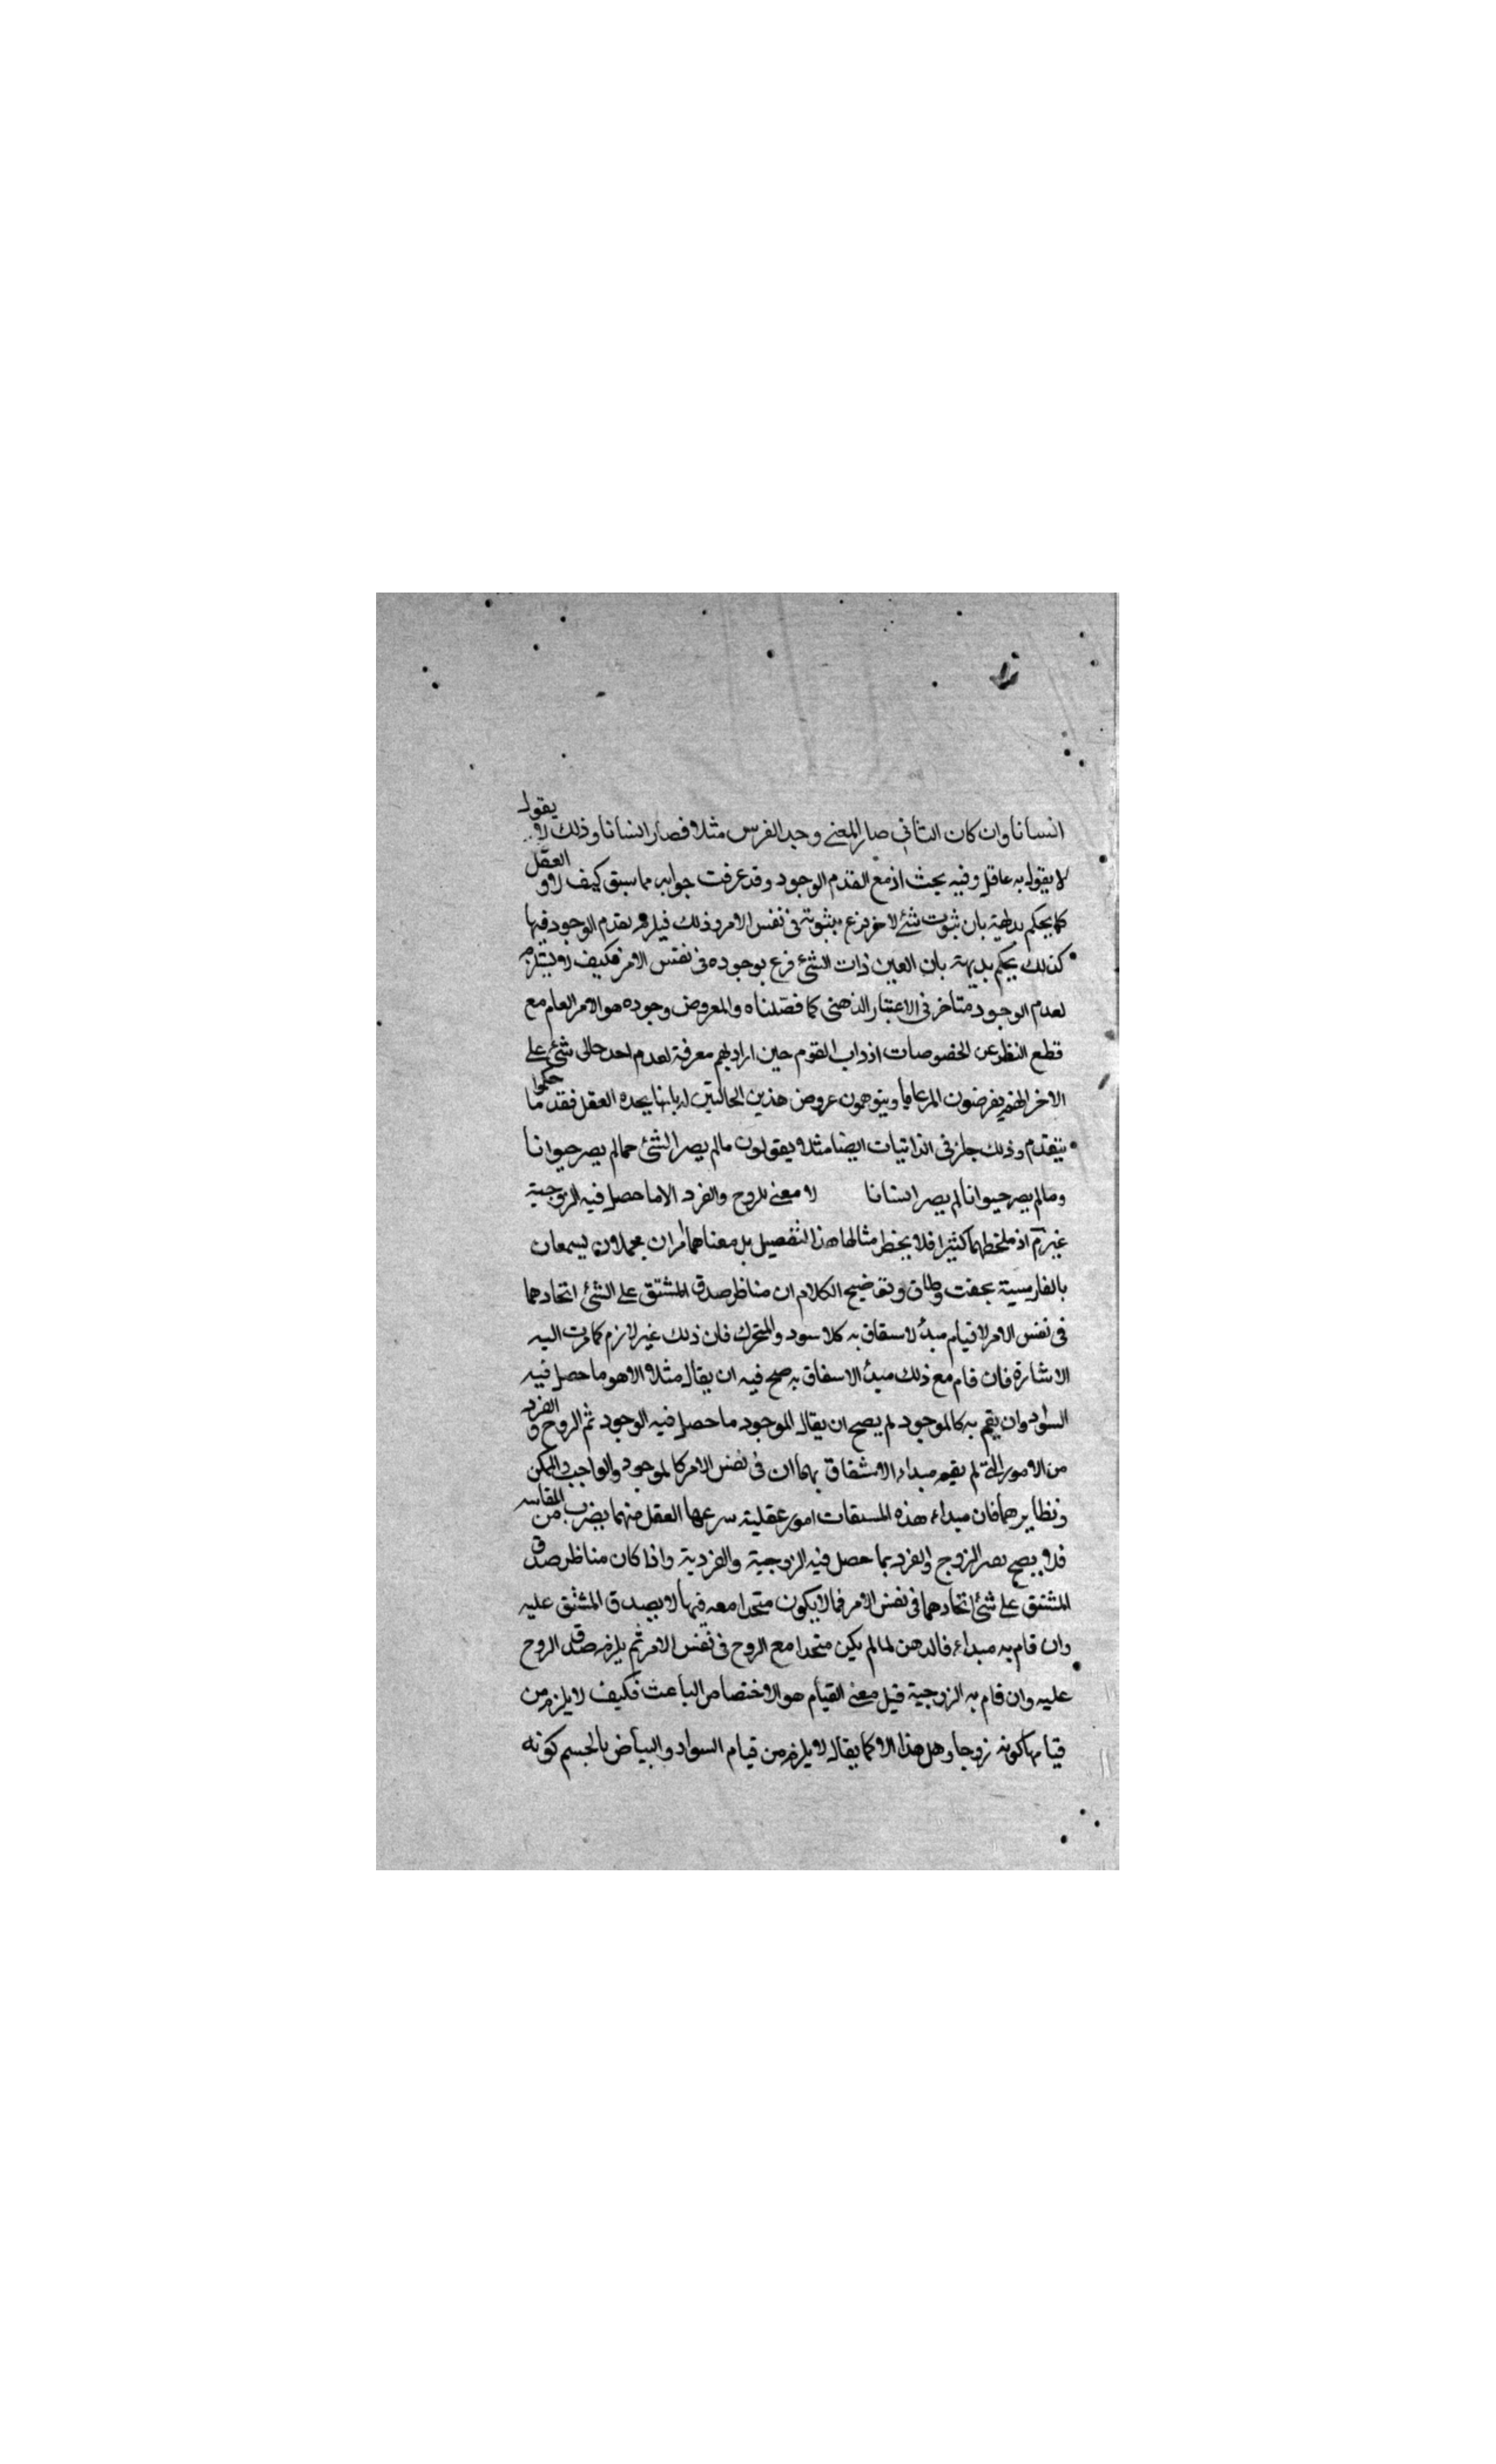 انسانا وان كان الثاني صار المعنى وجد الفرس مثلا فصار انسانا وذلك لا يقول
لا يقول به عاقل وفيه بحث اذ مع القدم الوجود وقد عرفت جوابه مما سبق كيف لا و العقل
كما يحكم بداهة بان ثبوت شئ لاخر فرع ثبوته فى نفس الامر وذلك فيلزم تقدم الوجود فيها
كذلك يحكم بديهة بان العين ذات الشئ فرع بوجوده فى نفس الامر فكيف لا يستلزم
لعدم الوجود متاخر فى الاعتبار الذهنى كما فصلناه والمعروض وجوده هو الامر العام مع
قطع النظر عن الخصوصات اذ داب القوم حين ارادبهم معرفة لعدم احد حالى شئ على
الاخر انهم يفرضون امر عاما ويتوهمون عروض هذين الحالتين له بانما يجده العقل فقدما حكموا
يتقدم وذلك جار فى الذاتيات ايضا مثلا يقولون مالم يصر الشئ حمالم يصر حيوانا
ومالم يصر حيوانا لم يصر انسانا لا معنى للروج والفرد الا ما حصل فيه الزوجية
غيرم اذ ملخطهما كثيرا فلا يخطر مثالها هذا التفصيل بل معناهما امران مجملان يسمعان
بالفارسية بجفت وطاق وتوضيح الكلام ان مناظر صدق المشتق على الشئ اتحادهما
فى نفس الامر لا قيام مبدأ لاسقاق به كلاسود والمتحرك فان ذلك غير لازم كما مرت اليه
الاشارة فان قام مع ذلك مبدأ الاسفاق به صح فيه ان يقال مثلا الاهو ما حصل فيه
السواد وان يقم به كالموجود لم يصح ان يقال الموجود ما حصل فيه الوجود ثم الروج و الفرد
من الامور التى لم يقم مبداء الاشقاق بهما ان فى نفس الامر كالموجود والواجب والممكن
ونظايرهما فان مبداء هذه المسقات امور عقلية سرعها العقل منهما بضرب من المقاسه
فلا يصح تصر الزوج والفرد بما حصل فيه الزوجية والفردية واذا كان مناظر صدق
المشتق على شئ اتحادهما فى نفس الامر فما لا يكون متحدا معه فيها لا يصدق المشتق عليه
وان قام به مبداء فالدهن لما لم يكن متحدا مع الروح فى نفس الامر ثم يلزم صدق الروح
عليه وان قام به الزوجية قيل معنى القيام هو الاختصاص الباعث فكيف لا يلزم من
قيامها كونه زوجا وهل هذا الا كما يقال لا يلزم من قيام السواد والبياض بالجسم كونه